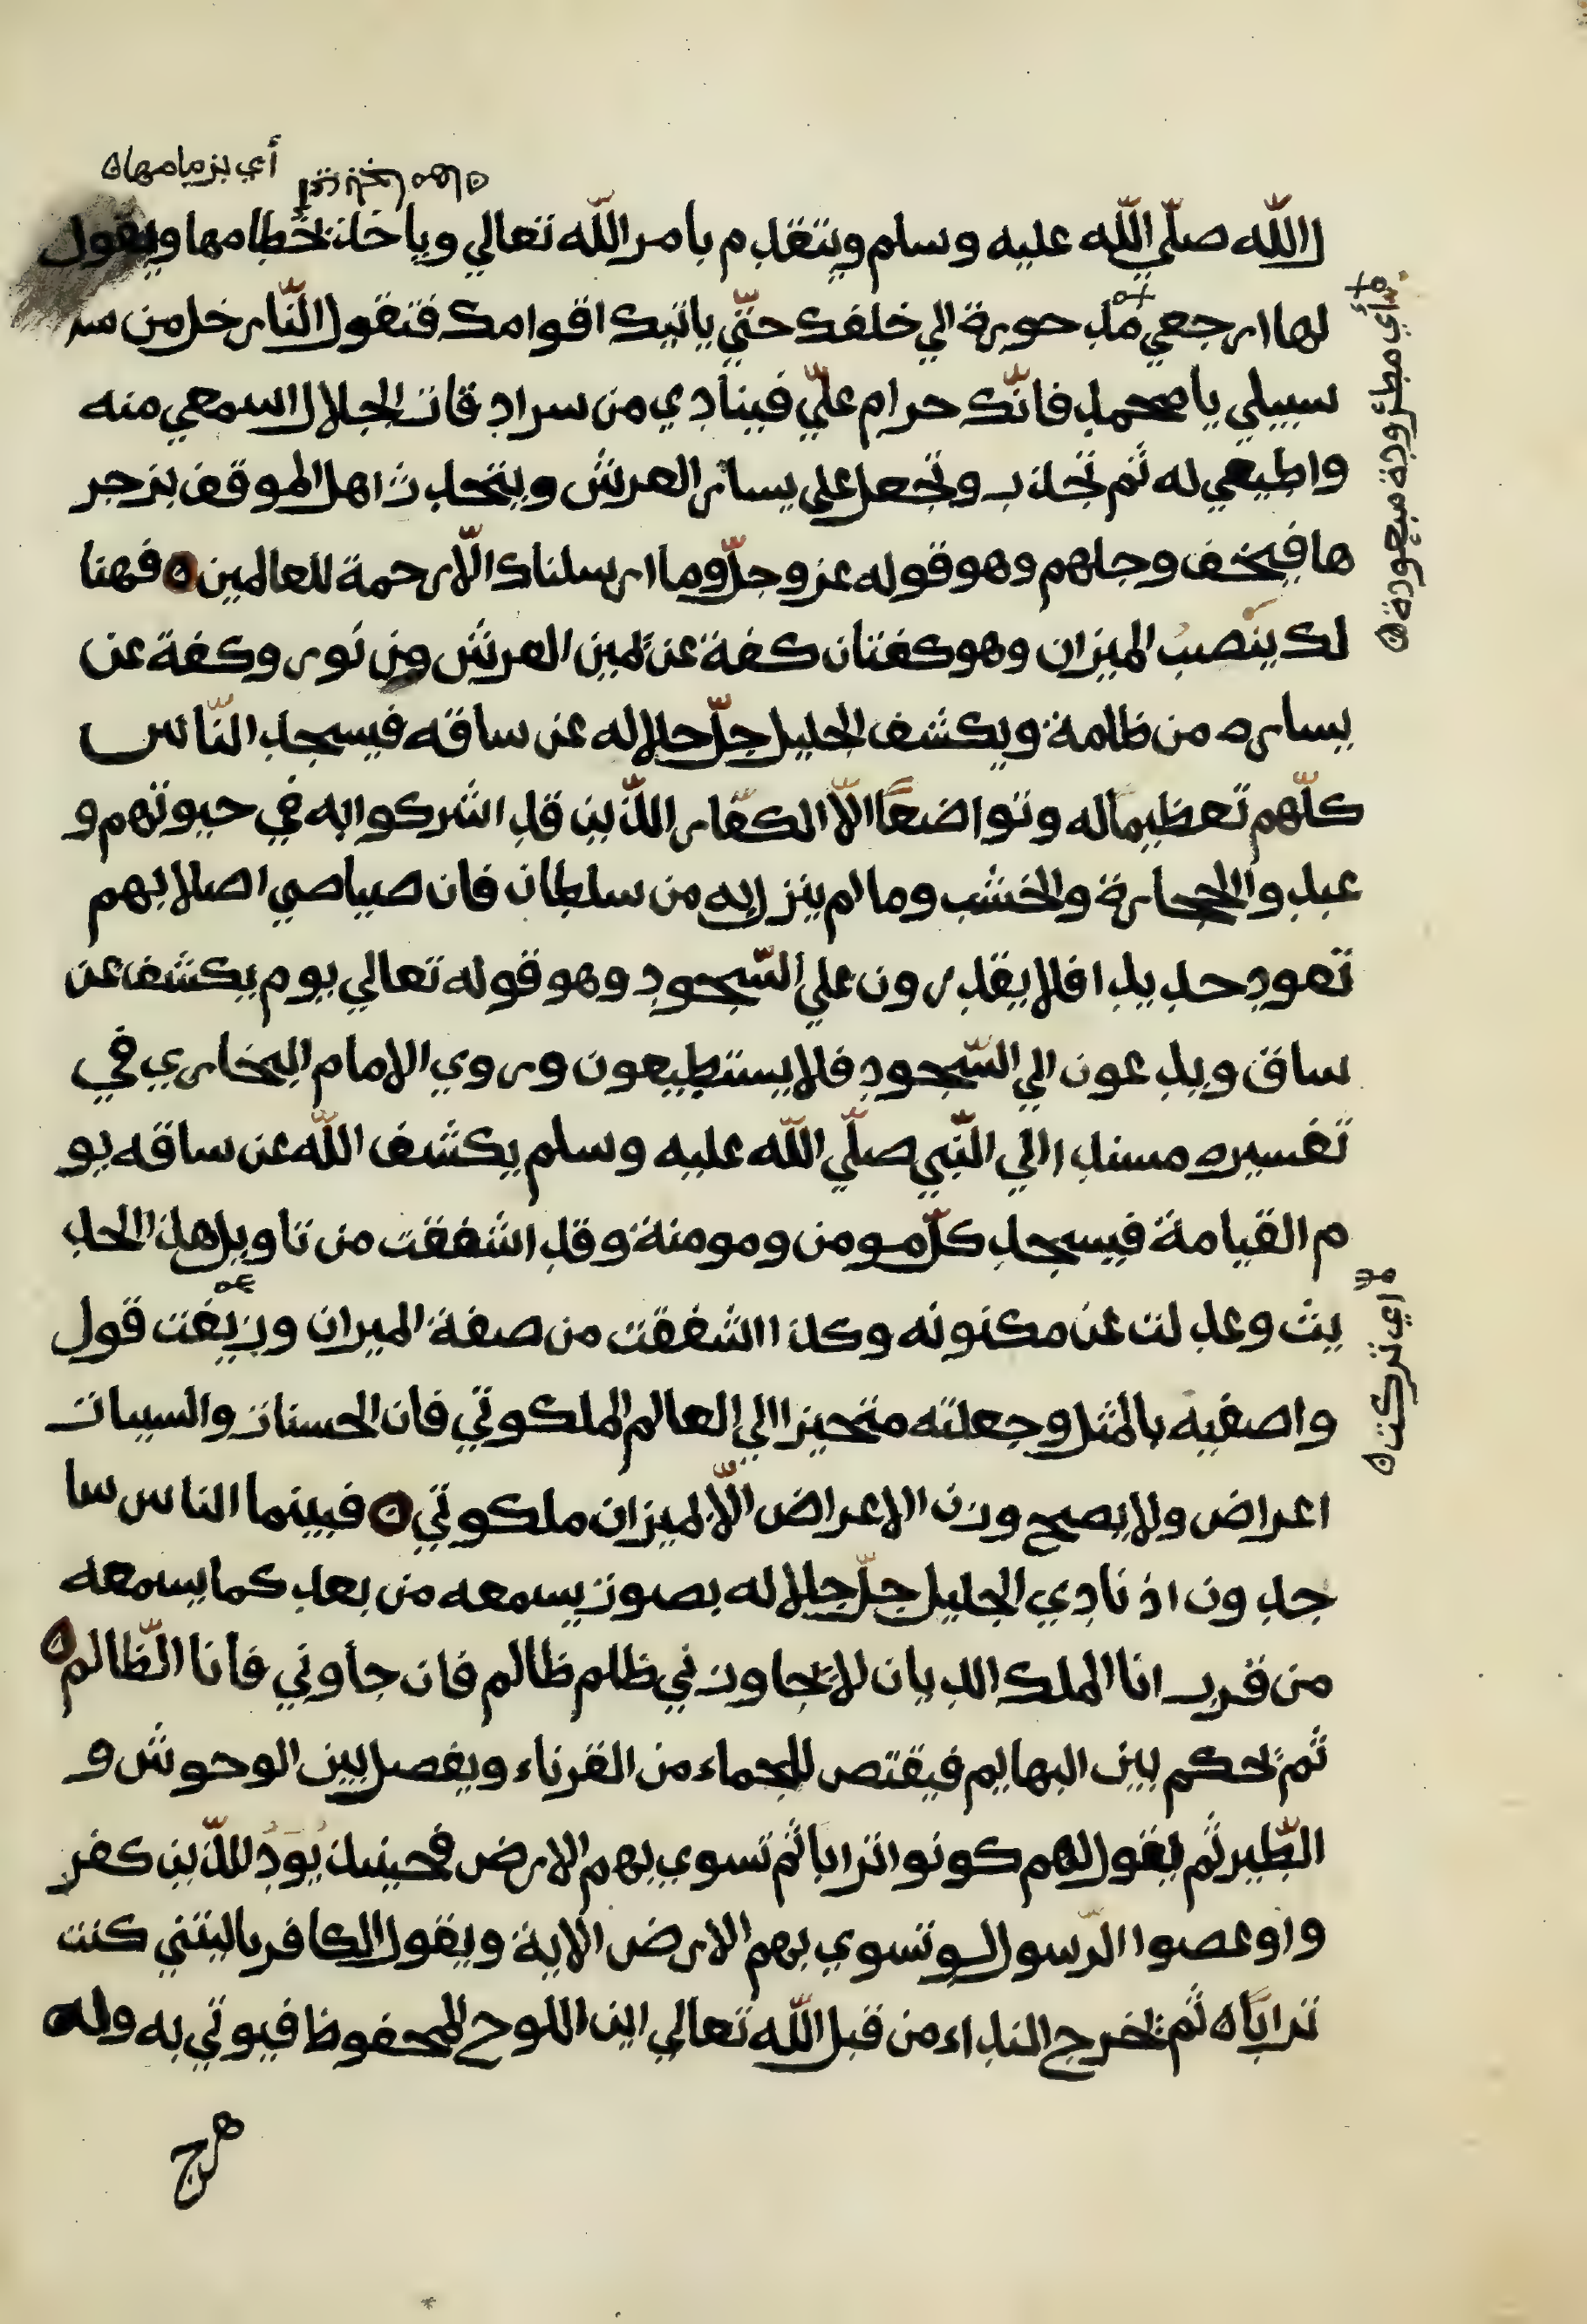 أي بزمامها ه
ل الله صلّي اللّه عليه وسلم ويتقدم بامر اللّه تعالي وياخذ بخطامها ويقول
لها ارجعي مدحورة الي خلفك حتّي ياتيك اقوامك فتقول النّار خل من
سبيلي يا محمد فانّك حرام عليّ فينادي من سرادقات الجلال اسمعي منه
واطيعي له ثم تجذب وتجعل علي يسار العرش ويتحدث اهل الموقف بزجر
ها فيخف وجلهم وهو قوله عز وجلّ وما ارسلناك الّا رحمة للعالمين ه فهنا
لك ينصب الميزان وهو كفتان كفة عن يمين العرش من نور وكفة عن
يساره من ظلمة ويكشف الجليل جلّ جلاله عن ساقه فيسجد النّاس
كلّهم تعظيما له وتواضعًا الّا الكفّار اللذين قد اشركوا به في حيوتهم و
عبدوا الحجارة والخشب وما لم ينزل به من سلطان فان صياصي اصلابهم
تعود حديدا فلا يقدرون علي السّجود وهو قوله تعالي يوم يكشف عن
ساق ويدعون الي السّجود فلا يستطيعون وروي الامام البخاري في
تفسيره مسندا الي النّبي صلّي اللّه عليه وسلم يكشف اللّه عن ساقه يو
م القيامة فيسجد كلّ مومن ومومنة وقد اشفقت من تاويل هذا الحد
يث وعدلت عن مكنونه وكذا اشفقت من صفة الميزان وزيّفت قول
واصفيه بالمثل وجعلته متحيزا الي العالم الملكوتي فان الحسنات والسيات
اعراض ولا يصح وزن الاعراض الّا بميزان ملكوتي ه فبينما الناس سا
جدون اذ نادي الجليل جلّ جلاله بصوت يسمعه من بعد كما يسمعه
من قرب انا الملك الديان لا يجاوزني ظلم ظالم فان جاوزني فانا الظّالم ه
ثم يحكم بين البهايم فيقتص للجماء من القرناء ويفصل بين الوحوش و
الطّير ثم يقول لهم كونوا ترابا ثم تسوي بهم الارض فحينيذ يودُ اللذين كفر
وا وعصوا الرّسول لو تسوي بهم الارض الاية ويقول الكافر ياليتني كنت
ترابًا ه ثم يخرج النداء من قبل اللّه تعالي اين اللوح المحفوظ فيوتي به وله
هرج
أي مطرودة مبعودة ه
أي تركت ه